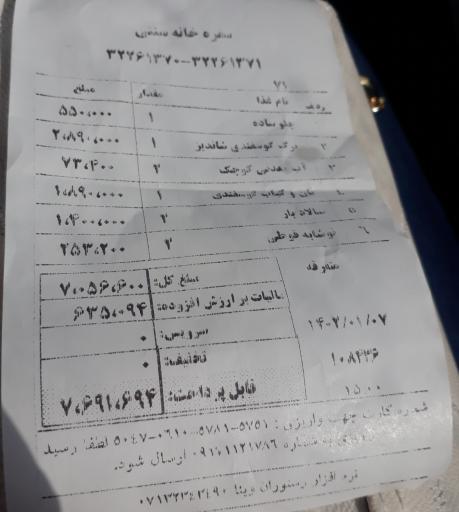 سفره خانه سنتی
۳۲۲۶۱۳۷۰-۳۲۲۶۱۳۷۱
۷۱
ردیف نام غذا مقدار مبلغ
چلو ساده ۱ ۵۵۰,۰۰۰
۲ برگ گوسفندی شاندیز ۱ ۲,۸۹۰,۰۰۰
۳ آب معدنی کوچک ۲ ۷۳,۴۰۰
نان و کباب گوسفندی ۱ ۱,۸۹۰,۰۰۰
۵ سالاد بار ۲ ۱,۴۰۰,۰۰۰
۶ نوشابه قوطی ۲ ۲۵۳,۲۰۰
مبلغ کل: ۷,۰۵۶,۶۰۰
مالیات بر ارزش افزوده: ۶۳۵,۰۹۴
سرویس: ۰
تخفیف: ۰
قابل پرداخت: ۷,۶۹۱,۶۹۴
متفرقه
۱۴۰۲/۰۱/۰۷
۱۰۸۴۳۶
۱۵:۰۰
شماره کارت جهت واریزی: ۵۰۴۷-۰۶۱۰-۵۷۸۱-۵۷۵۱ لطفا رسید
به شماره ۰۹۱۰۱۱۲۱۷۸۶ ارسال شود.
نرم افزار رستوران وینا ۰۷۱۳۲۳۴۲۴۹۰